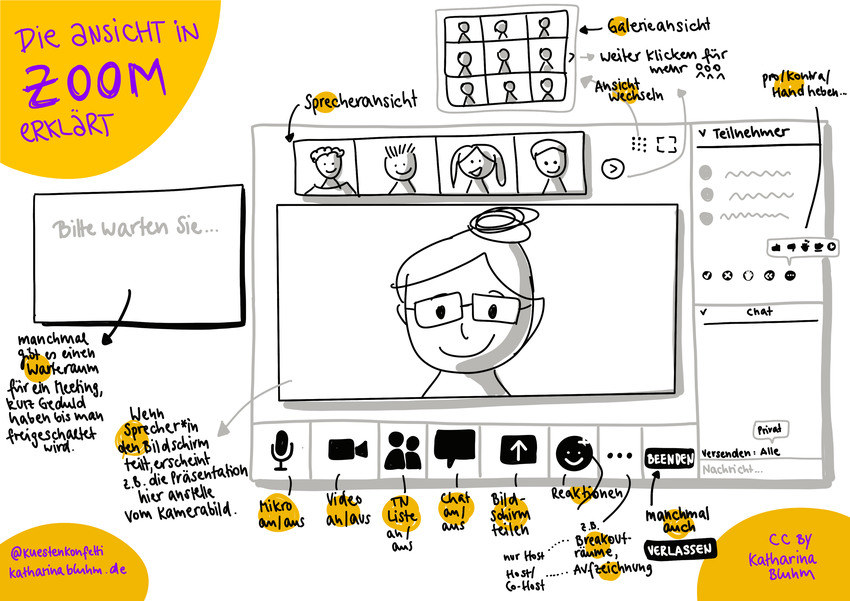 Die Ansicht in
ZOOM
erklärt
Sprecheransicht
Galerieansicht
Weiter klicken für
mehr
Ansicht
wechseln
pro/kontra/
Hand heben...
Teilnehmer
Bitte warten Sie...
manchmal
gibt es einen
Warteraum
für ein Meeting,
kurz Geduld
haben bis man
freigeschaltet
wird.
Wenn
Sprecher*in
den Bildschirm
teilt, erscheint
z.B. die Präsentation
hier anstelle
vom Kamerabild.
Chat
Privat
Versenden: Alle
Nachricht...
BEENDEN
Mikro
an/aus
Video
an/aus
TN
Liste
an/
aus
Chat
an/
aus
Bild-
schirm
teilen
Reaktionen
z.B.
nur Host
Breakout-
räume,
Host/
Co-Host
Aufzeichnung
manchmal
auch
VERLASSEN
@kuestenkonfetti
katharinabluhm.de
CC BY
Katharina
Bluhm